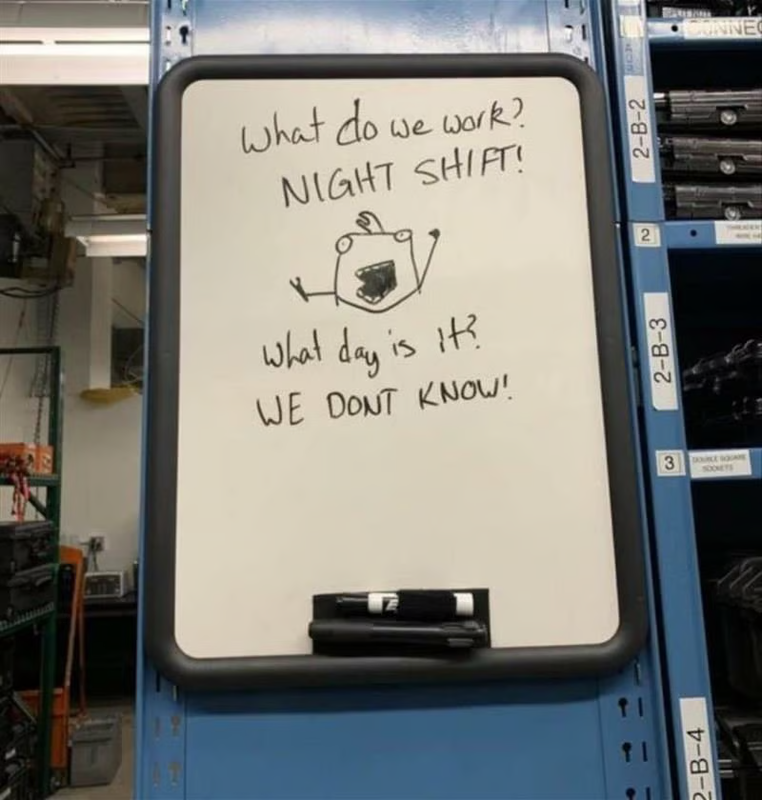 What do we work?
NIGHT SHIFT!
What day is it?
WE DONT KNOW!
CONNEC
2-B-2
2
2-B-3
3
DOUBLE SQUARE
SOCKETS
2-B-4